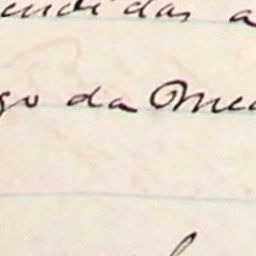 endidas a
go da Mea